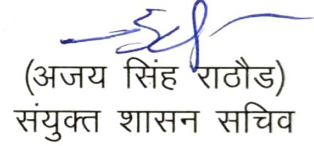 (अजय सिंह राठौड)
संयुक्त शासन सचिव